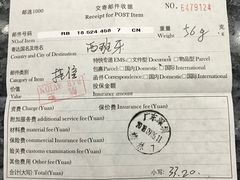 邮送1000 交寄邮件收据
Receipt for POST Item 6479124
邮件号码 RB 18 624 468 7 CN 重量 56g
寄达国名及地名 西班牙
Country and City of Destination
特快专递 EMS: 文件型 Document 物品型 Parcel
邮件类别 挂信 包裹 Parcel: 国内 Domestic 国际 International
Category 函件 Correspondence: 国内 Domestic 国际 International
价值 保价金额
Value Insurance Amount
资费 Charge (Yuan) 保价费 Insurance Fee (yuan)
附加服务费 additional service fee (Yuan)
材料费 material fee (Yuan)
保险费 commercial Insurance fee (Yuan)
验关费 customs examination fee (Yuan)
其他费用 Other fee (Yuan)
合计(大写) Total (Yuan) 小写: 33.20